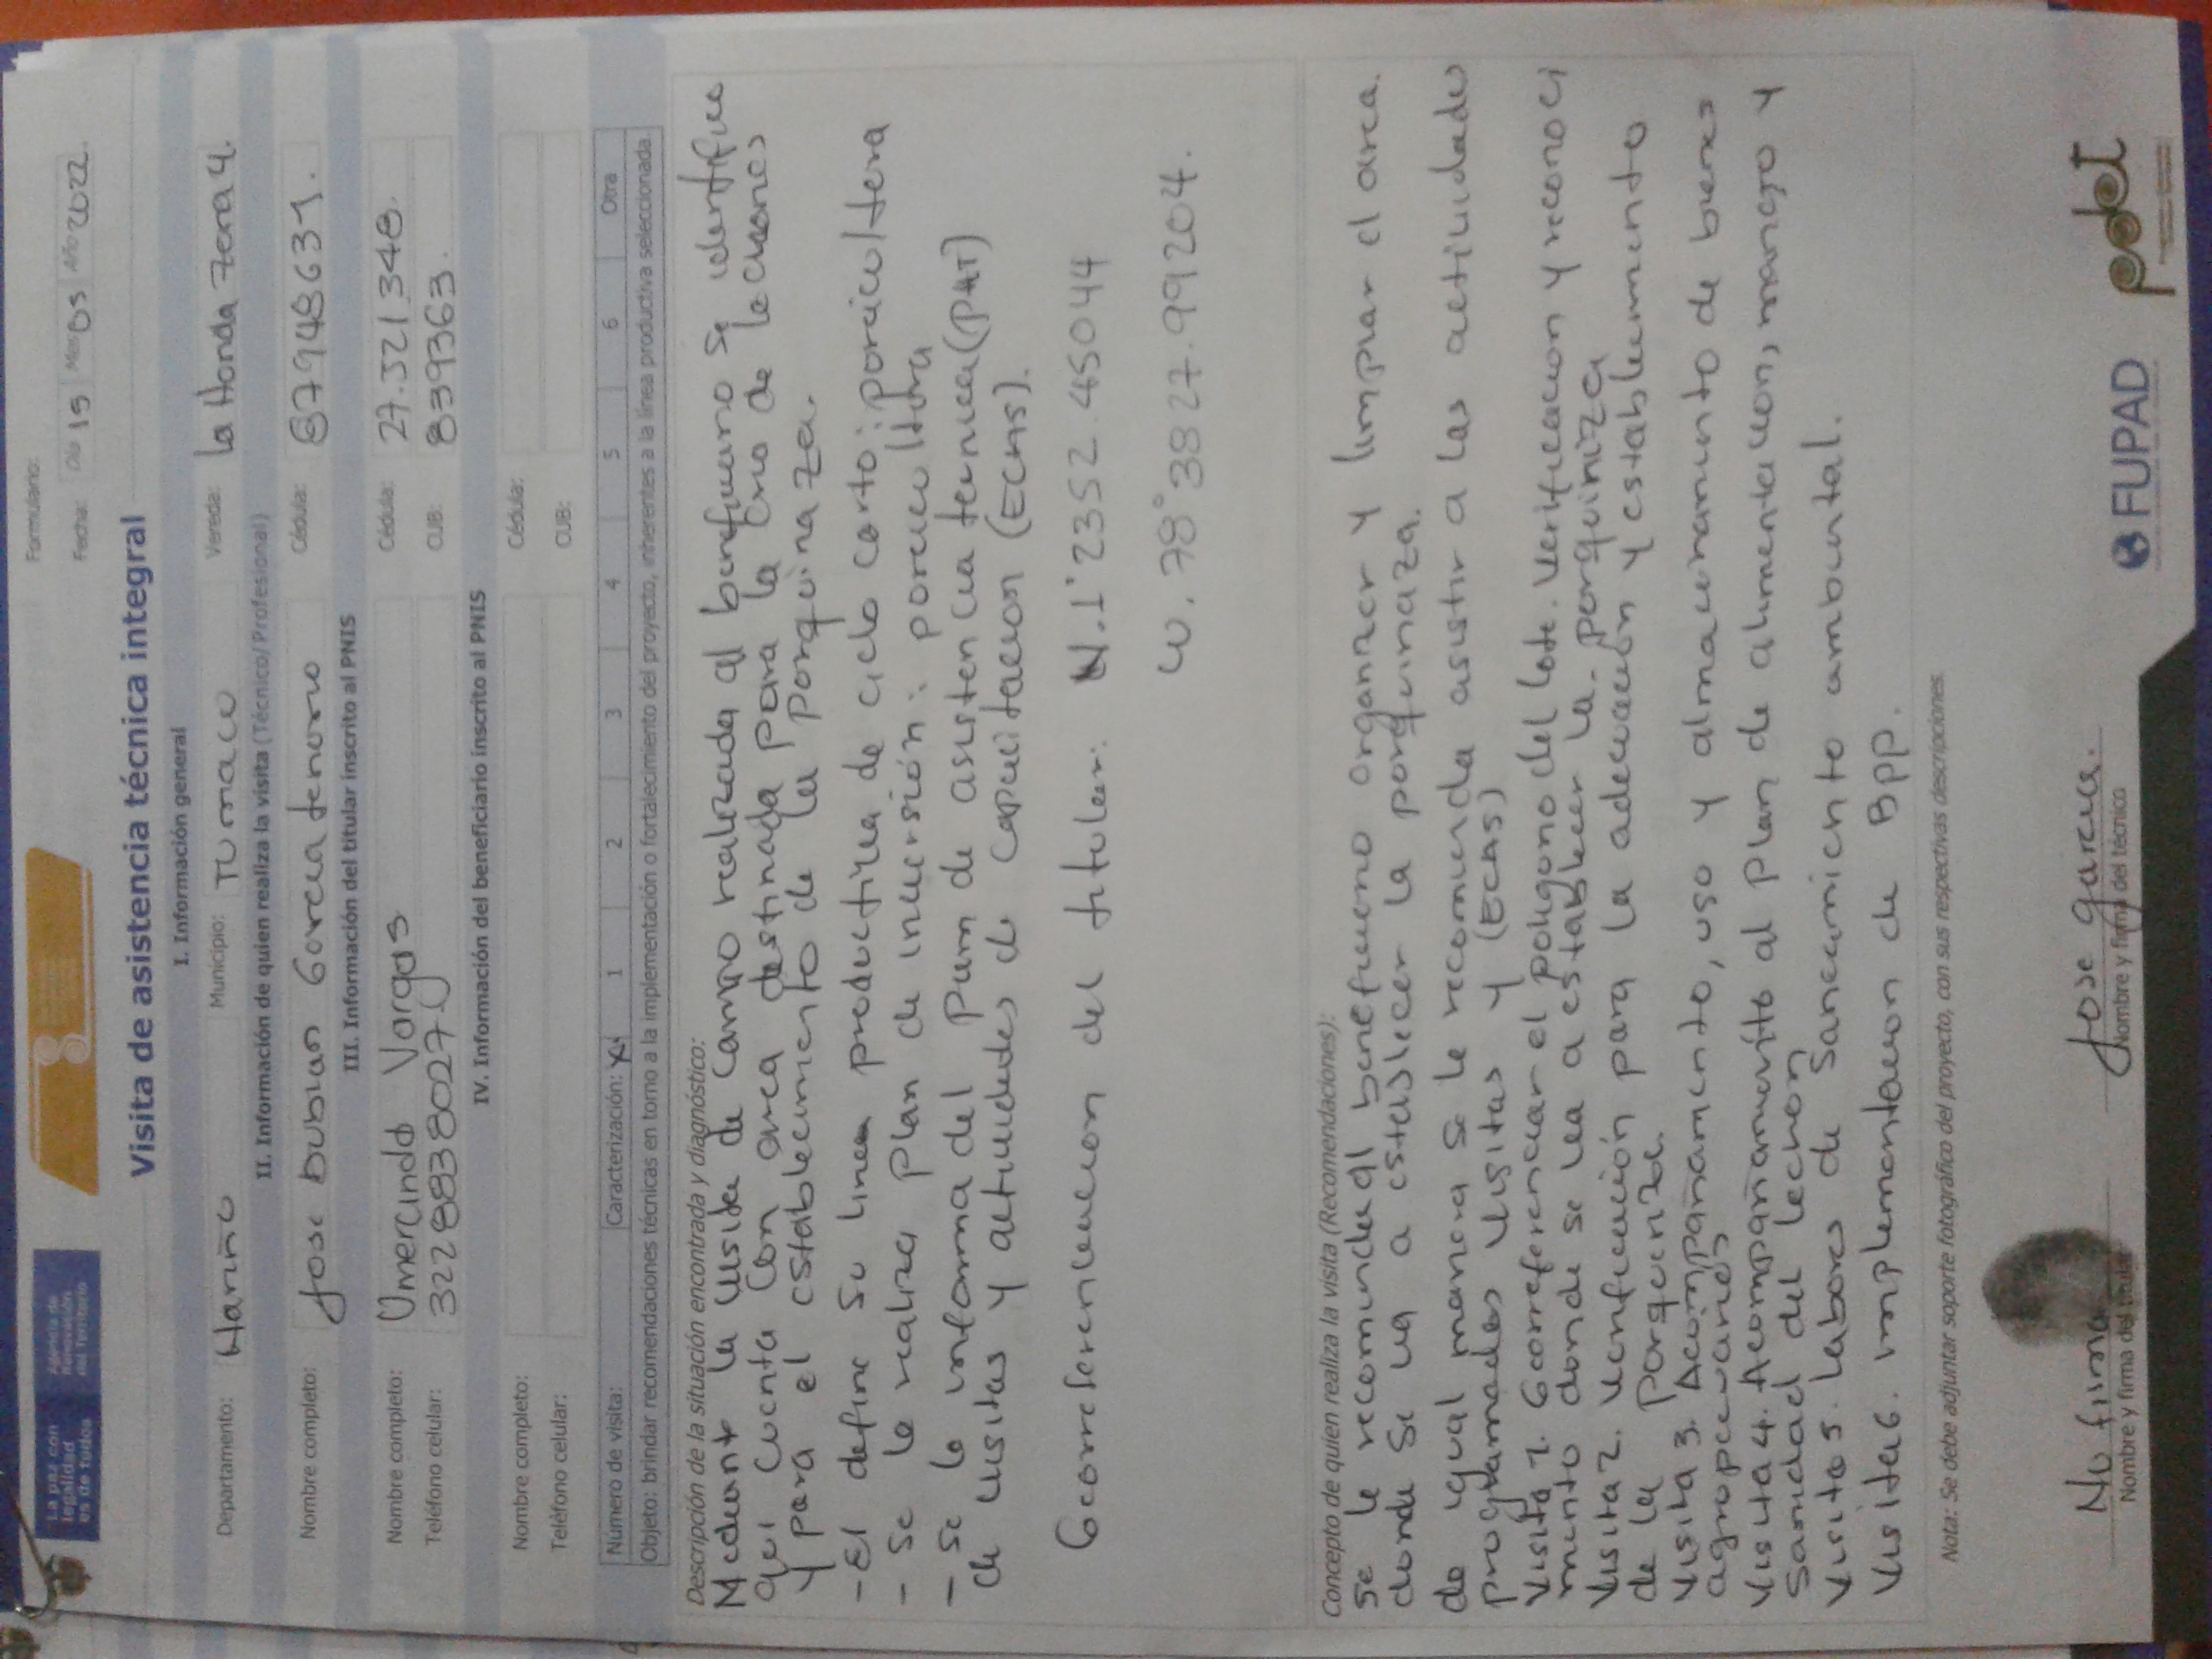 La paz con
legalidad
es de todos
Agencia de
Renovación
del Territorio
Formulario:
Fecha: Día 15 Mes 05 Año 2022.
Visita de asistencia técnica integral
I. Información general
Departamento: Nariño Municipio: Tumaco Vereda: la Honda Zona 4.
II. Información de quien realiza la visita (Técnico/Profesional)
Nombre completo: Jose Dubian Garcia tenorio Cédula: 87948631.
III. Información del titular inscrito al PNIS
Nombre completo: Umercinda Vargas Cédula: 27.521348.
Teléfono celular: 3228838027 CUB: 8393363.
IV. Información del beneficiario inscrito al PNIS
Nombre completo: Cédula:
Teléfono celular: CUB:
Número de visita: Caracterización: X 1 2 3 4 5 6 Otra
Objeto: brindar recomendaciones técnicas en torno a la implementación o fortalecimiento del proyecto, inherentes a la línea productiva seleccionada.
Descripción de la situación encontrada y diagnóstico:
Mediante la visita de campo realizada al beneficiario se identifica
que cuenta con area destinada para la cria de lechones
y para el establecimiento de la porquinaza.
- El define su linea productiva de ciclo corto: porcicultera
- Se le realiza Plan de inversión: porcicultura
- Se le informa del Plan de asistencia tecnica (PAT)
de visitas y actividades de capacitacion (ECAS).
Georreferenciacion del titular: N.1°2352.45044
W.78°3827.99204.
Concepto de quien realiza la visita (Recomendaciones):
Se le recomienda al beneficiario organizar y limpiar el area
donde se va a establecer la porquinaza.
de igual manera se le recomienda asistir a las actividades
programadas visitas y (ECAS)
Visita 1. Georreferenciar el poligono del lote. Verificacion y reconoci
miento donde se va a establecer la porquiniza
Visita 2. Verificación para la adecuación y establecimiento
de la Porqueriza.
Visita 3. Acompañamiento, uso y almacenamiento de bienes
agropecuarios
Visita 4. Acompañamiento al Plan de alimentacion, manejo y
Sanidad del lechon
Visita 5. labores de Saneamiento ambiental.
Visita 6. implementacion de BPP.
Nota: Se debe adjuntar soporte fotográfico del proyecto, con sus respectivas descripciones.
No firma Jose garcia.
Nombre y firma del titular Nombre y firma del técnico
FUPAD pdet